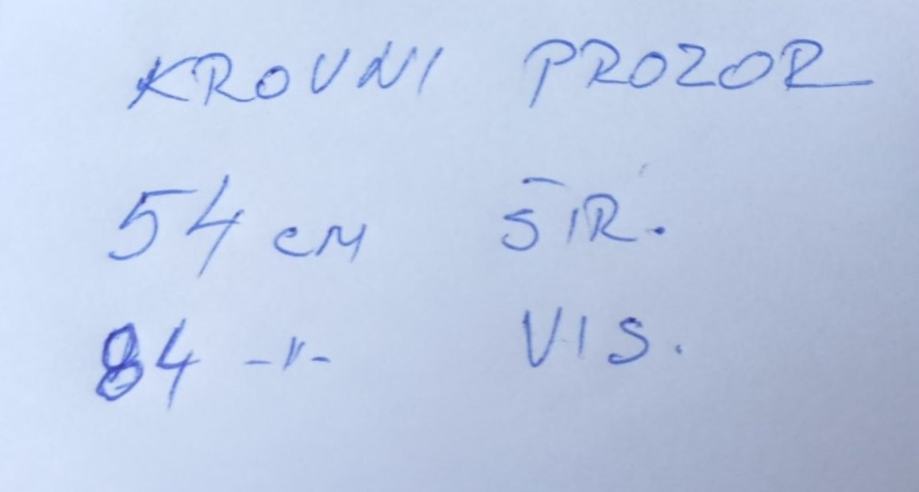 KROVNI PROZOR
54 cm ŠIR.
84 -"- VIS.